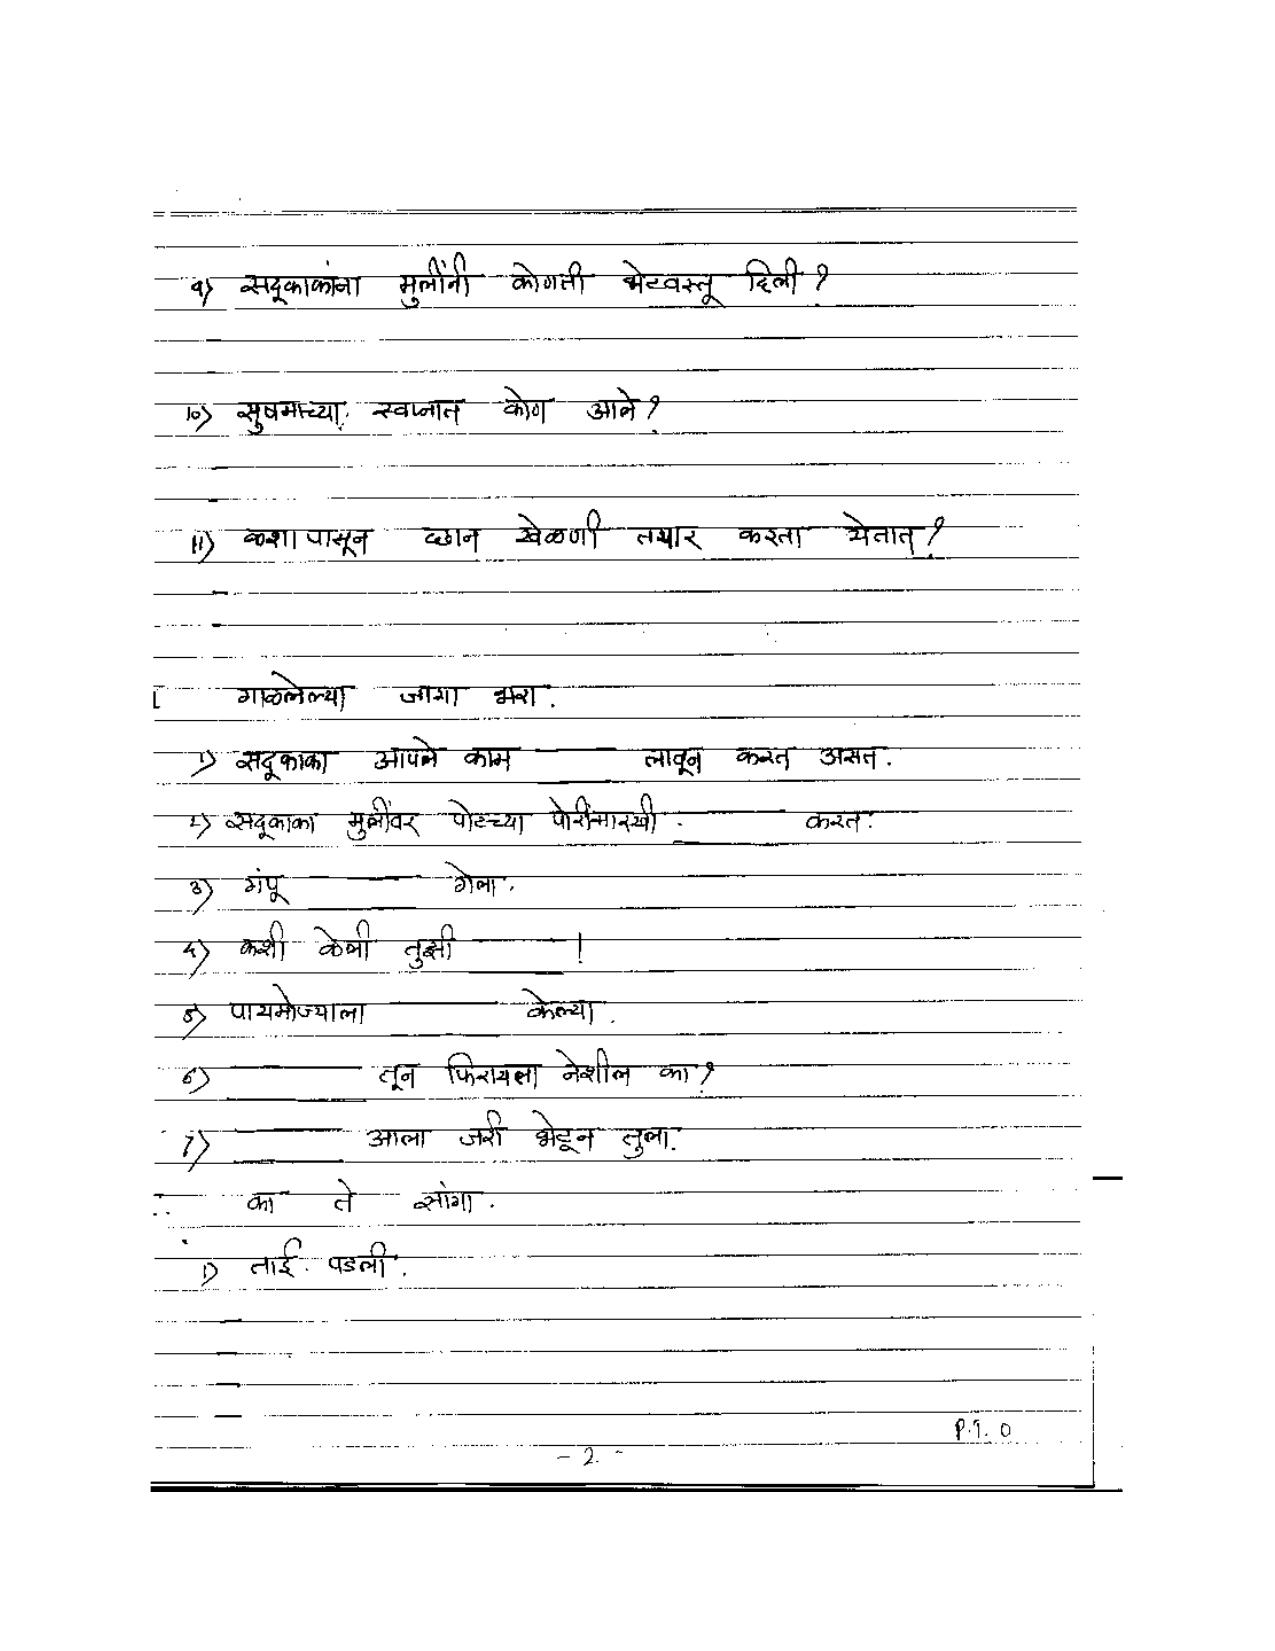 9) सदूकाकांना मुलींनी कोणती भेटवस्तू दिली?
10) सुषमाच्या स्वप्नात कोण आले?
11) कशापासून छान खेळणी तयार करता येतात?
गाळलेल्या जागा भरा.
1) सदूकाका आपले काम ______ लावून करत असत.
2) सदूकाका मुलींवर पोटच्या पोरींसारखी ______ करत.
3) गंपू ______ गेला.
4) कशी केली तुझी ______!
5) पायमोज्याला ______ केल्या.
6) ______ तून फिरायला नेशील का?
7) ______ आला जरी भेटून तुला.
का ते सांगा.
1) ताई पडली.
P.T.O
- 2. -